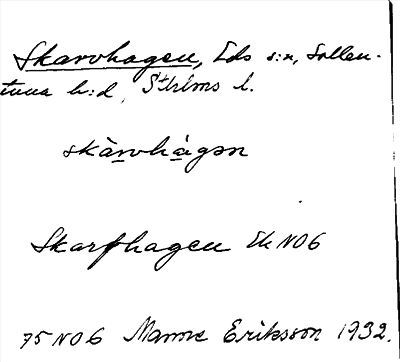 Skarvhagen, Eds s:n, Sollen-
tuna h:d, Sthlms l.
skàrvhàgən
Skarfhagen Ek N06
75 N0 6 Manne Eriksson 1932.